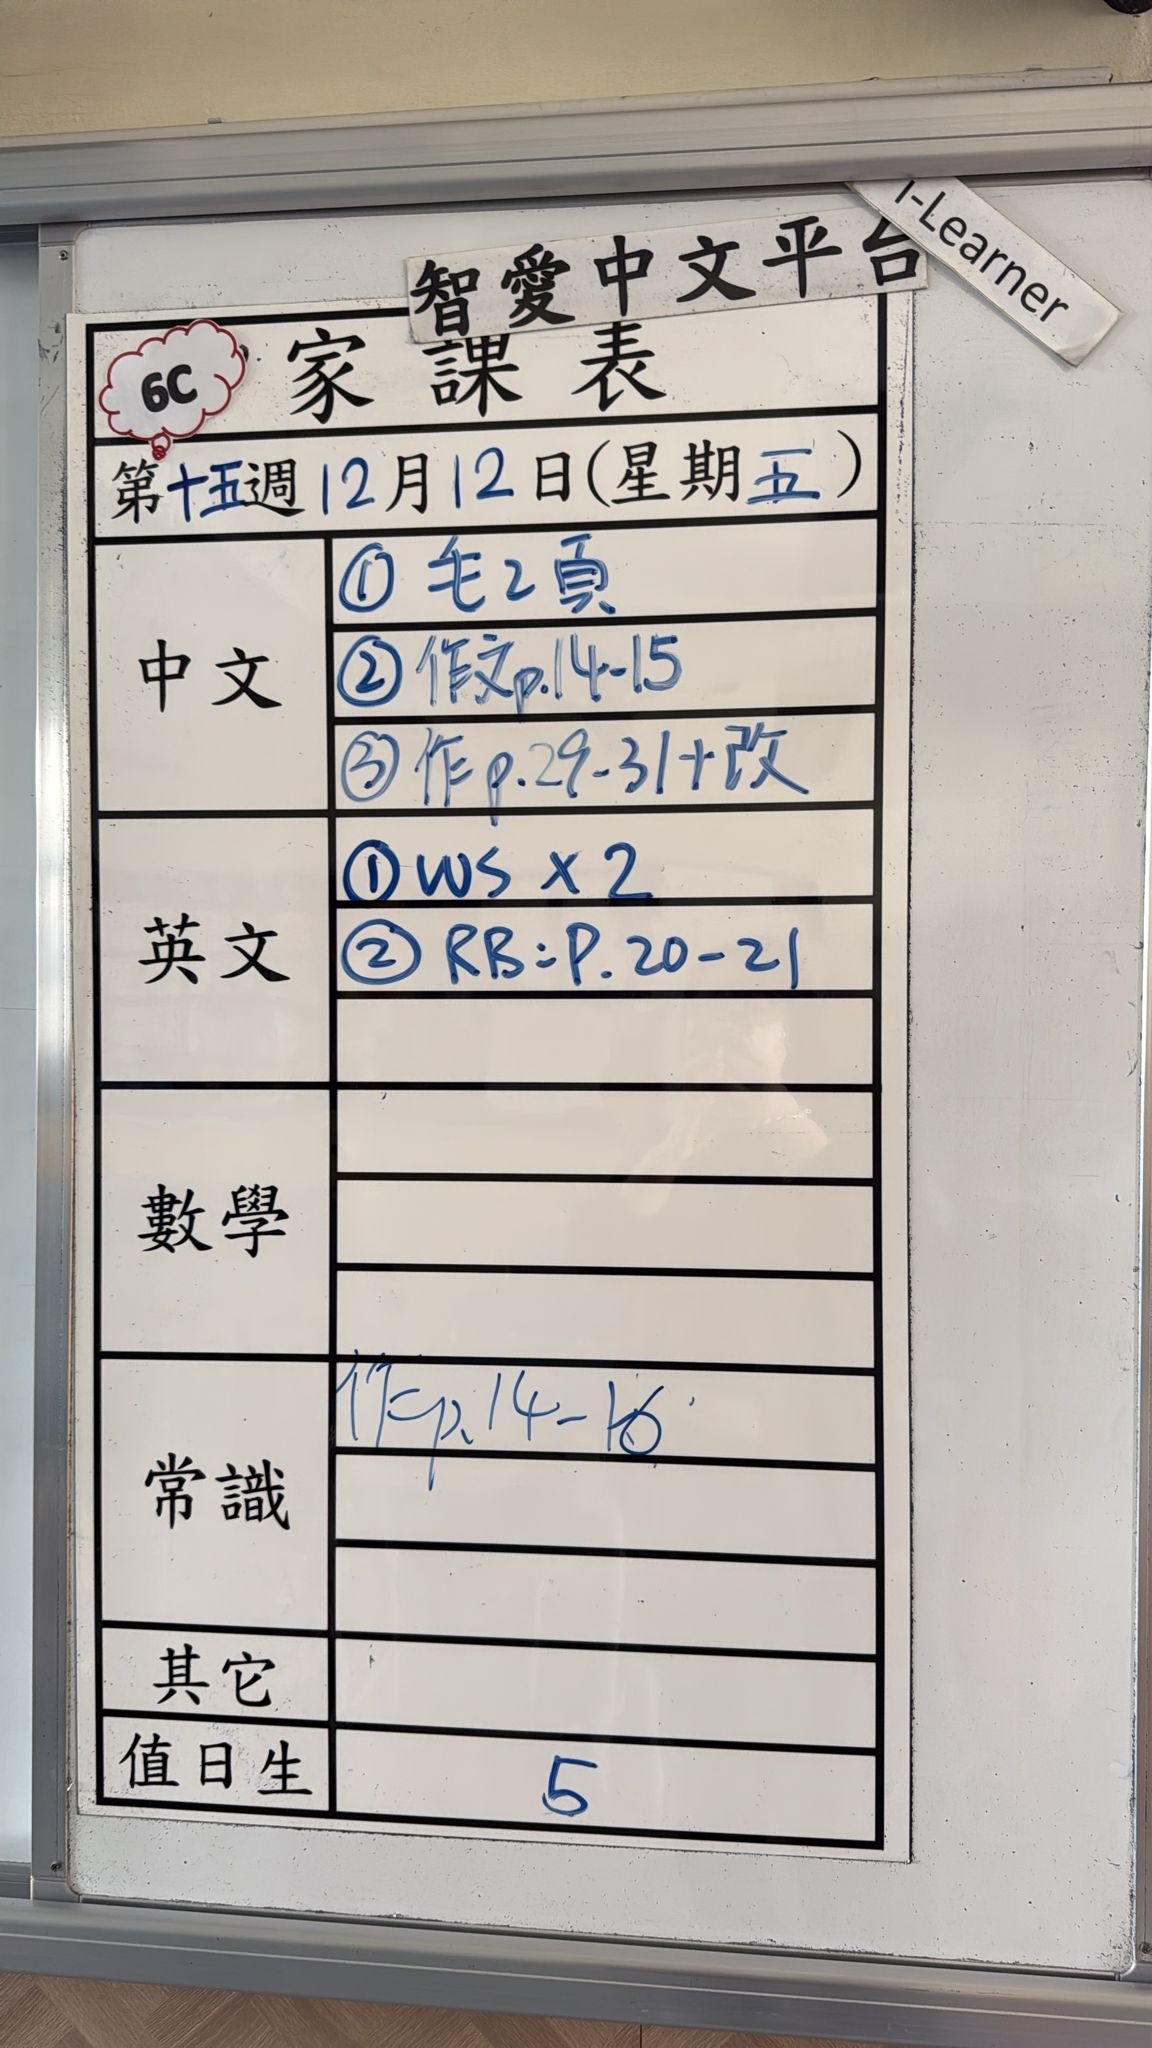 智愛中文平台
i-Learner
6C 家課表
第十五週12月12日(星期五)
中文
① 毛2頁
② 作文p.14-15
③ 作p.29-31+改
英文
① WS x 2
② RB:P.20-21
數學
常識
作p.14-16
其它
值日生
5